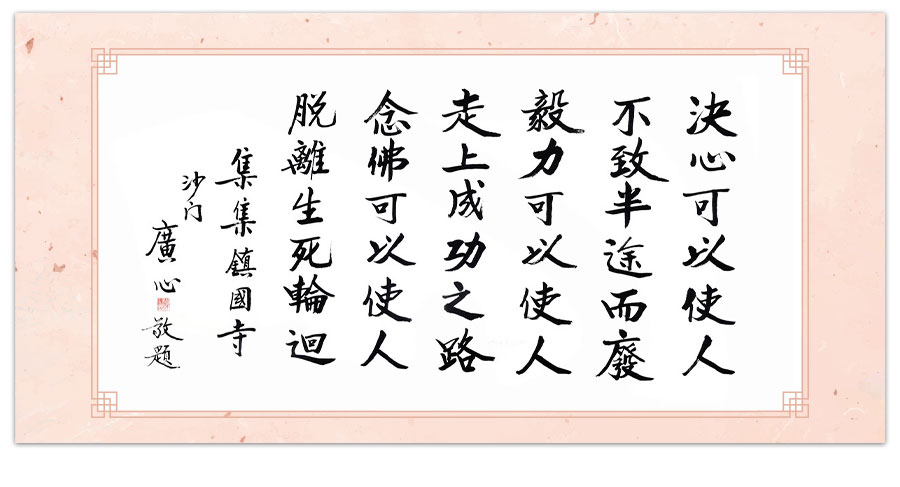 決心可以使人
不致半途而廢
毅力可以使人
走上成功之路
念佛可以使人
脫離生死輪迴
集集鎮國寺
沙门
廣心
敬題